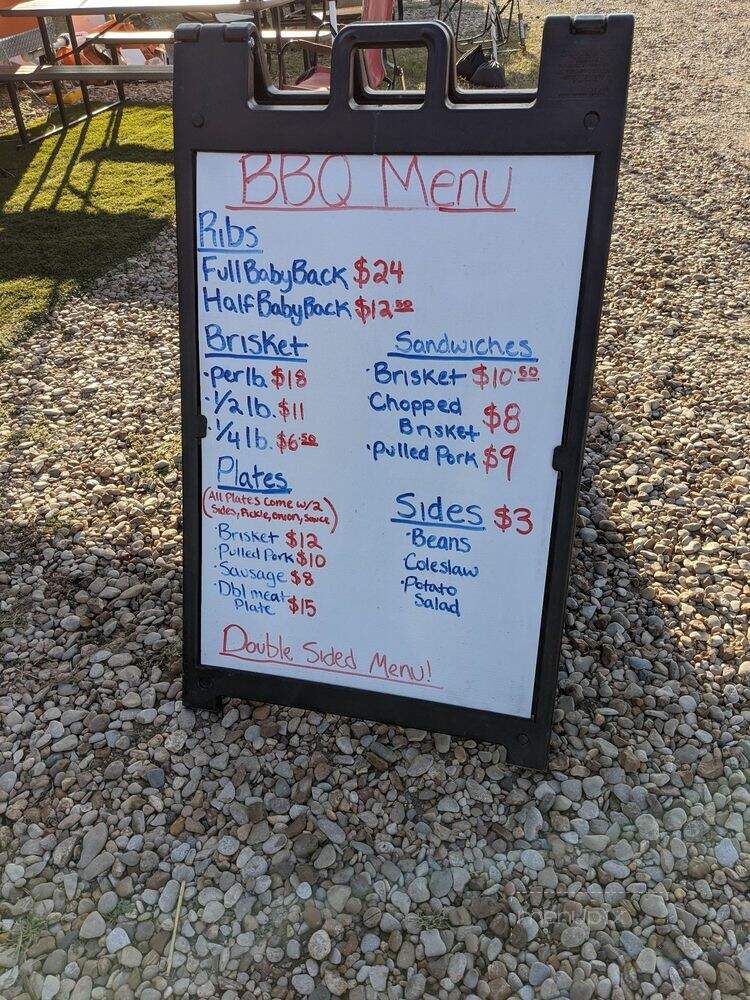 BBQ Menu
Ribs
Full Baby Back $24
Half Baby Back $12.50
Brisket
·per lb $18
·1/2 lb. $11
·1/4 lb. $6.50
Plates
(All Plates Come w/2
Sides, Pickle, onion, Sauce)
·Brisket $12
·Pulled Pork $10
·Sausage $8
·Dbl meat
Plate $15
Sandwiches
·Brisket $10.50
·Chopped
Brisket $8
·Pulled Pork $9
Sides $3
·Beans
Coleslaw
·Potato
Salad
Double Sided Menu!
menupix